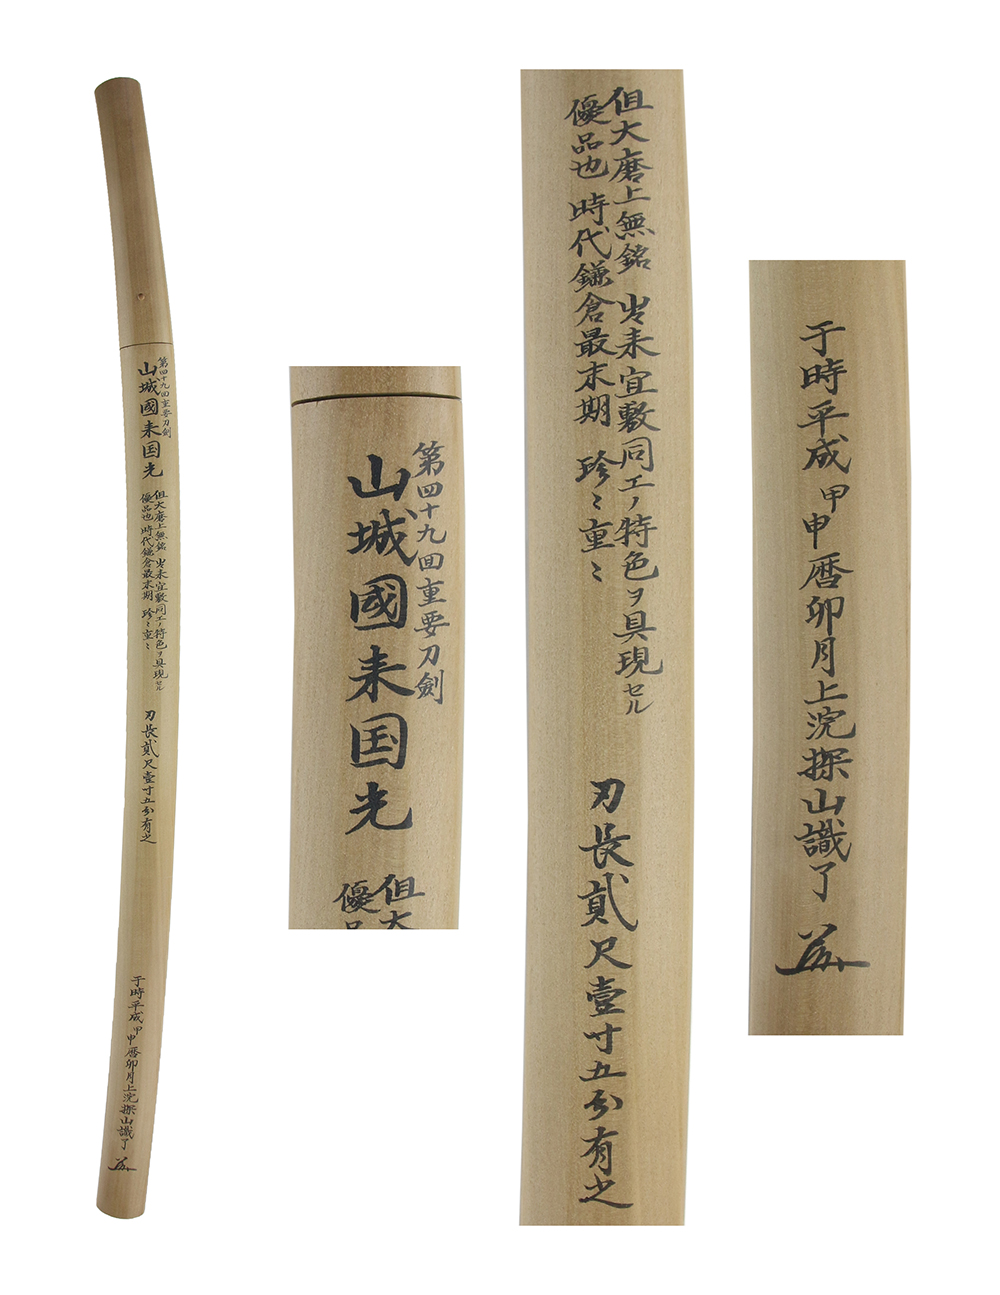 第四十九回重要刀剣
山城國来国光
但大磨上無銘 出来宜敷同工ノ特色ヲ具現セル
優品也 時代鎌倉最末期 珍々重々
刃長貳尺壹寸五分有之
于時平成甲申暦卯月上浣探山識了
第四十九回重要刀劍
山城國来国光
但大
優品
但大磨上無銘 出来宜敷同工ノ特色ヲ具現セル
優品也 時代鎌倉最末期 珍〻重〻
刃長貳尺壹寸五分有之
于時平成甲申暦卯月上浣探山識了